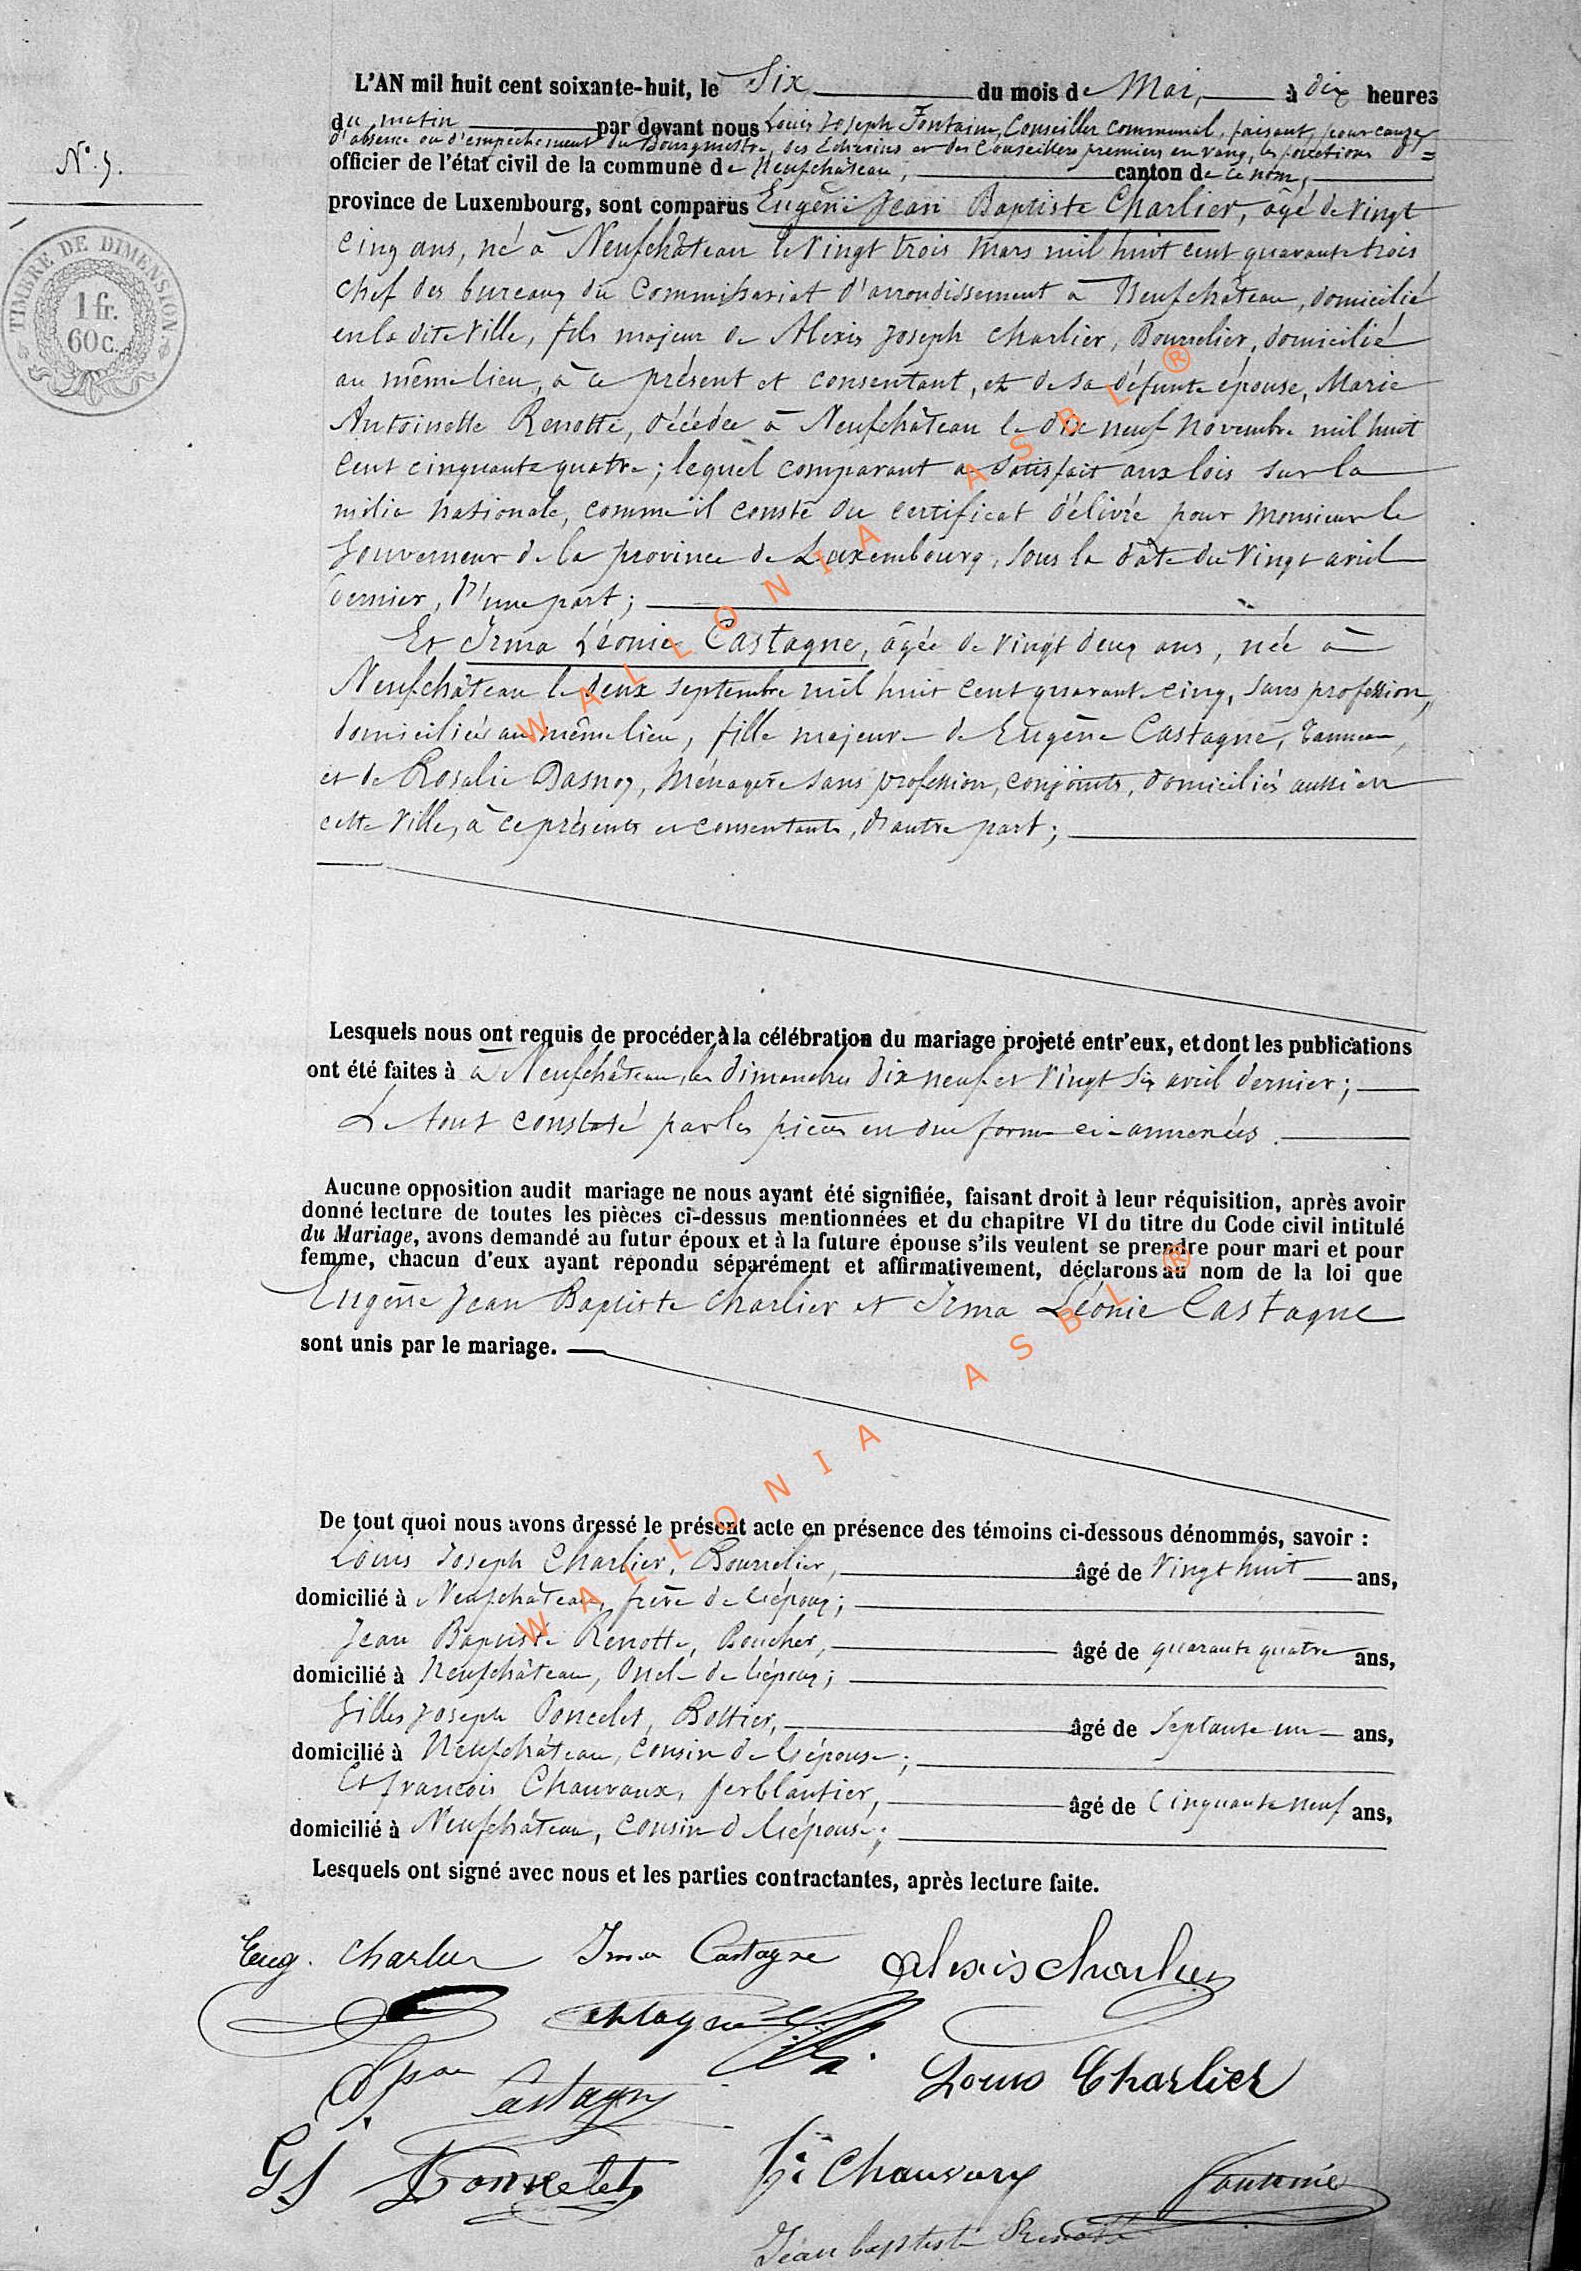 L'AN mil huit cent soixante-huit, le Six du mois de Mai, à dix heures
du matin par devant nous Louis Joseph Fontaine, Conseiller communal, faisant, pour cause
d'absence ou d'empêchement du Bourgmestre, des Echevins et des Conseillers premiers en rang, les fonctions d'=
N°. 5.
officier de l'état civil de la commune de Neufchâteau, canton de ce nom,
province de Luxembourg, sont comparus Eugène Jean Baptiste Charlier, âgé de vingt
TIMBRE DE DIMENSION
1 fr.
60 c.
cinq ans, né à Neufchâteau le vingt trois mars mil huit cent quarante trois
chef des bureaux du Commissariat d'arrondissement à Neufchâteau, domicilié
en la dite ville, fils majeur de Alexis Joseph Charlier, Bourrelier, domicilié
au même lieu, à ce présent et consentant, et de sa défunte épouse, Marie
Antoinette Renotte, décédée à Neufchâteau le dix neuf novembre mil huit
cent cinquante quatre; lequel comparant a satisfait aux lois sur la
milice nationale, comme il conste du certificat délivré pour Monsieur le
Gouverneur de la province de Luxembourg, sous la date du vingt avril
dernier, d'une part;
Et Irma Léonie Castagne, âgée de vingt deux ans, née à
Neufchâteau le deux septembre mil huit cent quarante cinq, sans profession,
domiciliée au même lieu, fille majeure de Eugène Castagne, Tanneur,
et de Rosalie Dasnoy, Ménagère sans profession, conjoints, domiciliés aussi en
cette ville, à ce présents et consentants, d'autre part;
Lesquels nous ont requis de procéder à la célébration du mariage projeté entr'eux, et dont les publications
ont été faites à à Neufchâteau, les dimanches dix neuf et vingt six avril dernier;
Le tout constaté par les pièces en due forme ci-annexées.
Aucune opposition audit mariage ne nous ayant été signifiée, faisant droit à leur réquisition, après avoir
donné lecture de toutes les pièces ci-dessus mentionnées et du chapitre VI du titre du Code civil intitulé
du Mariage, avons demandé au futur époux et à la future épouse s'ils veulent se prendre pour mari et pour
femme, chacun d'eux ayant répondu séparément et affirmativement, déclarons au nom de la loi que
Eugène Jean Baptiste Charlier et Irma Léonie Castagne
sont unis par le mariage.
De tout quoi nous avons dressé le présent acte en présence des témoins ci-dessous dénommés, savoir :
Louis Joseph Charlier, Bourrelier, âgé de vingt huit ans,
domicilié à Neufchâteau, frère de l'époux;
Jean Baptiste Renotte, Boucher, âgé de quarante quatre ans,
domicilié à Neufchâteau, Oncle de l'époux;
Gilles Joseph Poncelet, Bottier, âgé de Septante un ans,
domicilié à Neufchâteau, cousin de l'épouse;
Et François Chauvaux, ferblantier, âgé de Cinquante neuf ans,
domicilié à Neufchâteau, cousin de l'épouse;
Lesquels ont signé avec nous et les parties contractantes, après lecture faite.
Eug. Charlier Irma Castagne Alexis Charlier
Castagne
Castagne Louis Charlier
G J Poncelet Fs Chauvaux Fontaine
Jean baptiste Renotte
WALLONIA ASBL ®
WALLONIA ASBL ®